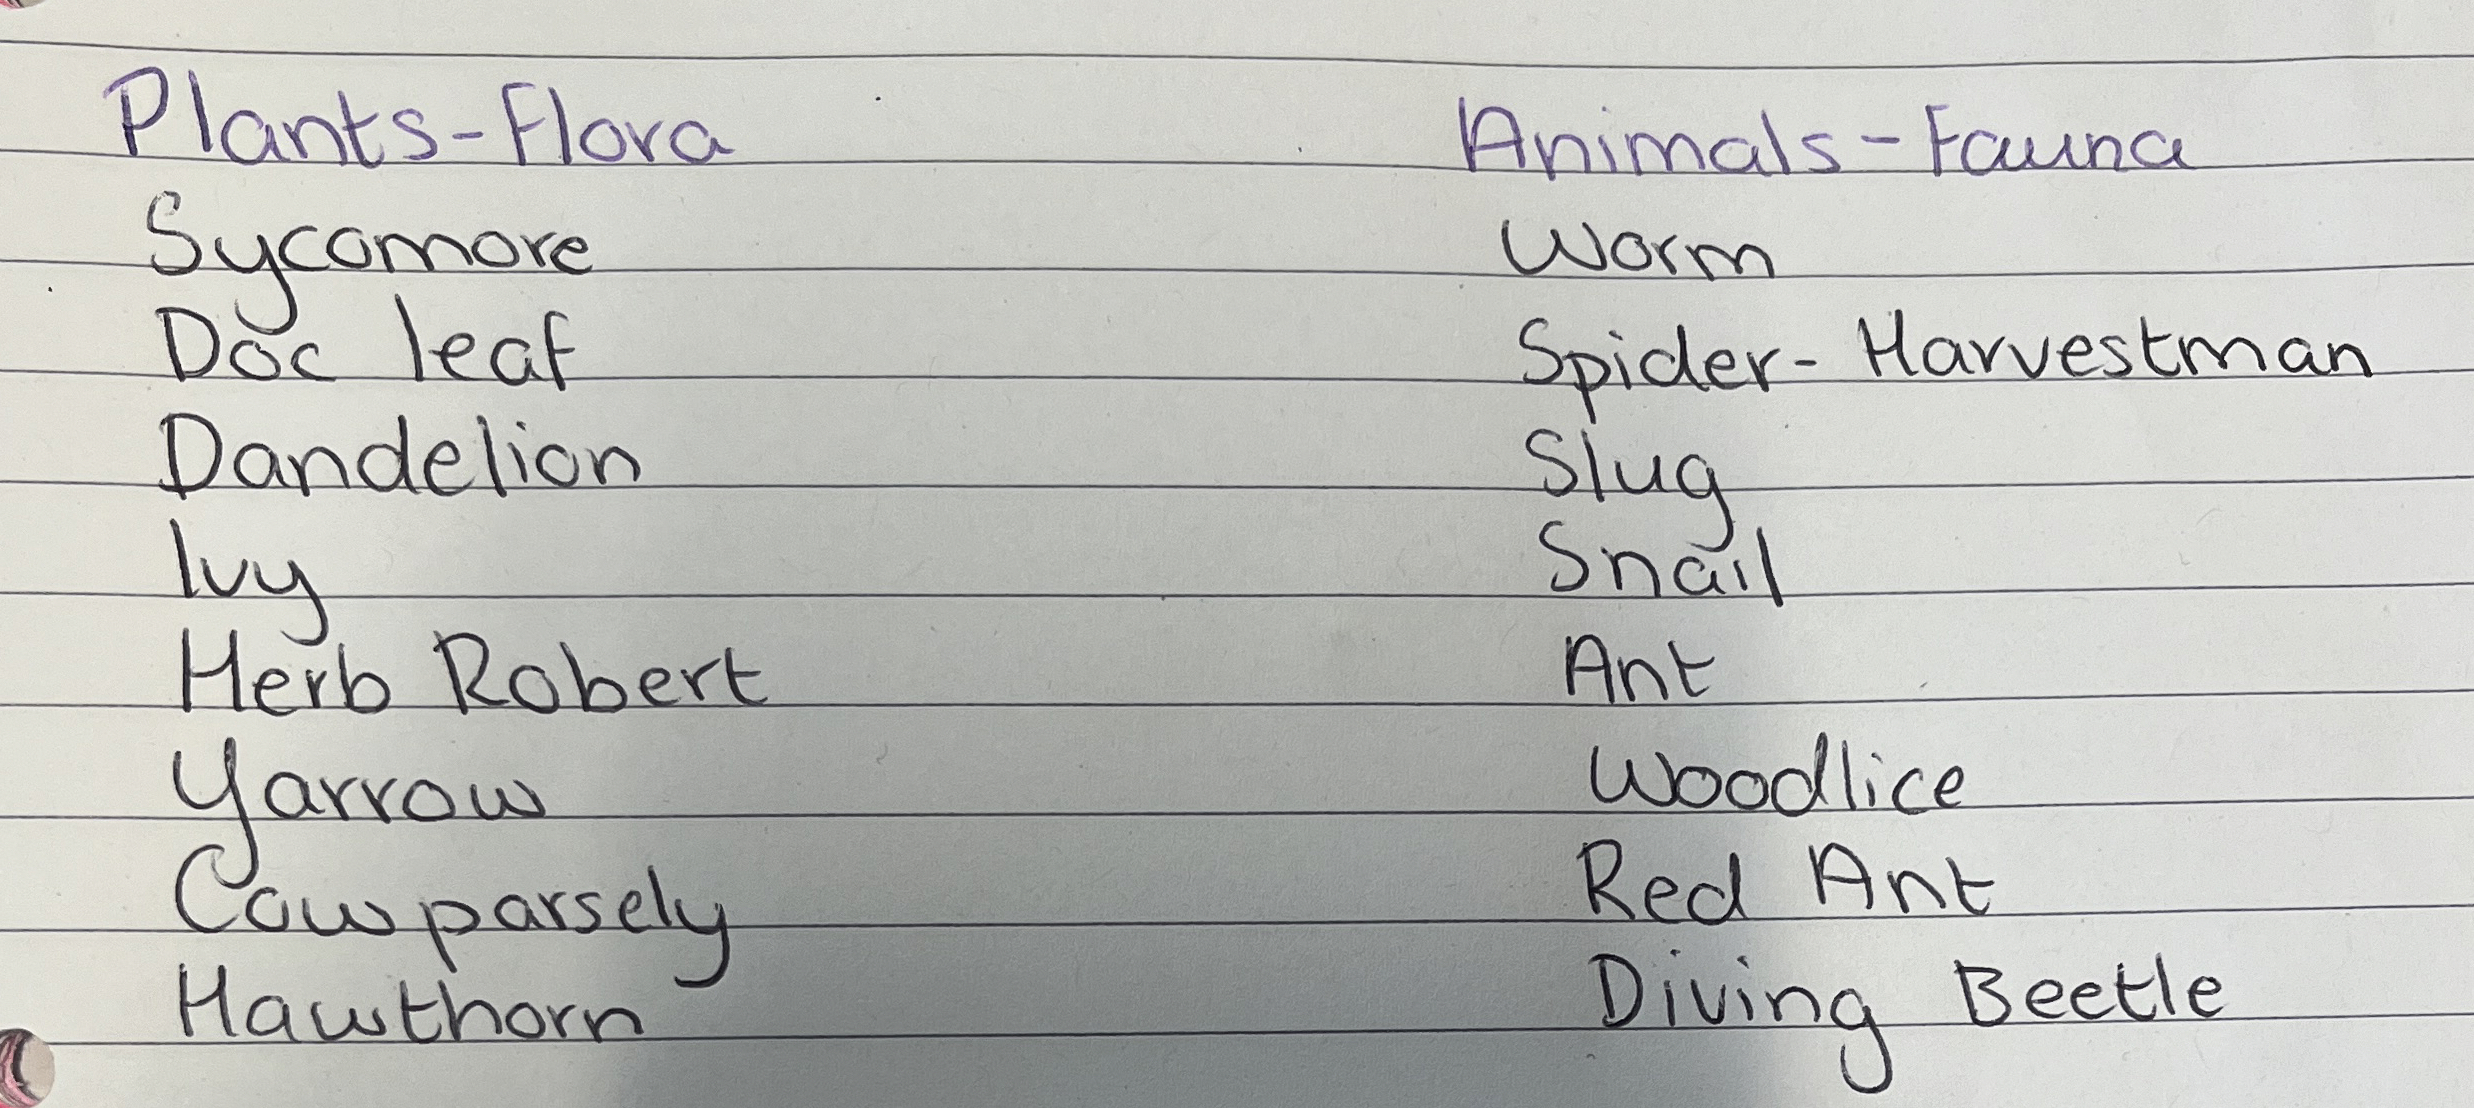 Plants-Flora
Sycomore
Doc leaf
Dandelion
Ivy
Herb Robert
Yarrow
Cow parsely
Hawthorn
Animals-Fauna
Worm
Spider- Harvestman
Slug
Snail
Ant
Woodlice
Red Ant
Diving Beetle